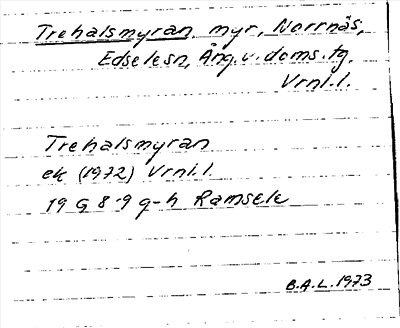 Trehalsmyran, myr, Norrnäs,
Edselesn, Ång.v.doms.tg.
Vrnl.l.
Trehalsmyran
ek (1972) Vrnl.l.
19 G 8-9 g-h Ramsele
B.A.L. 1973